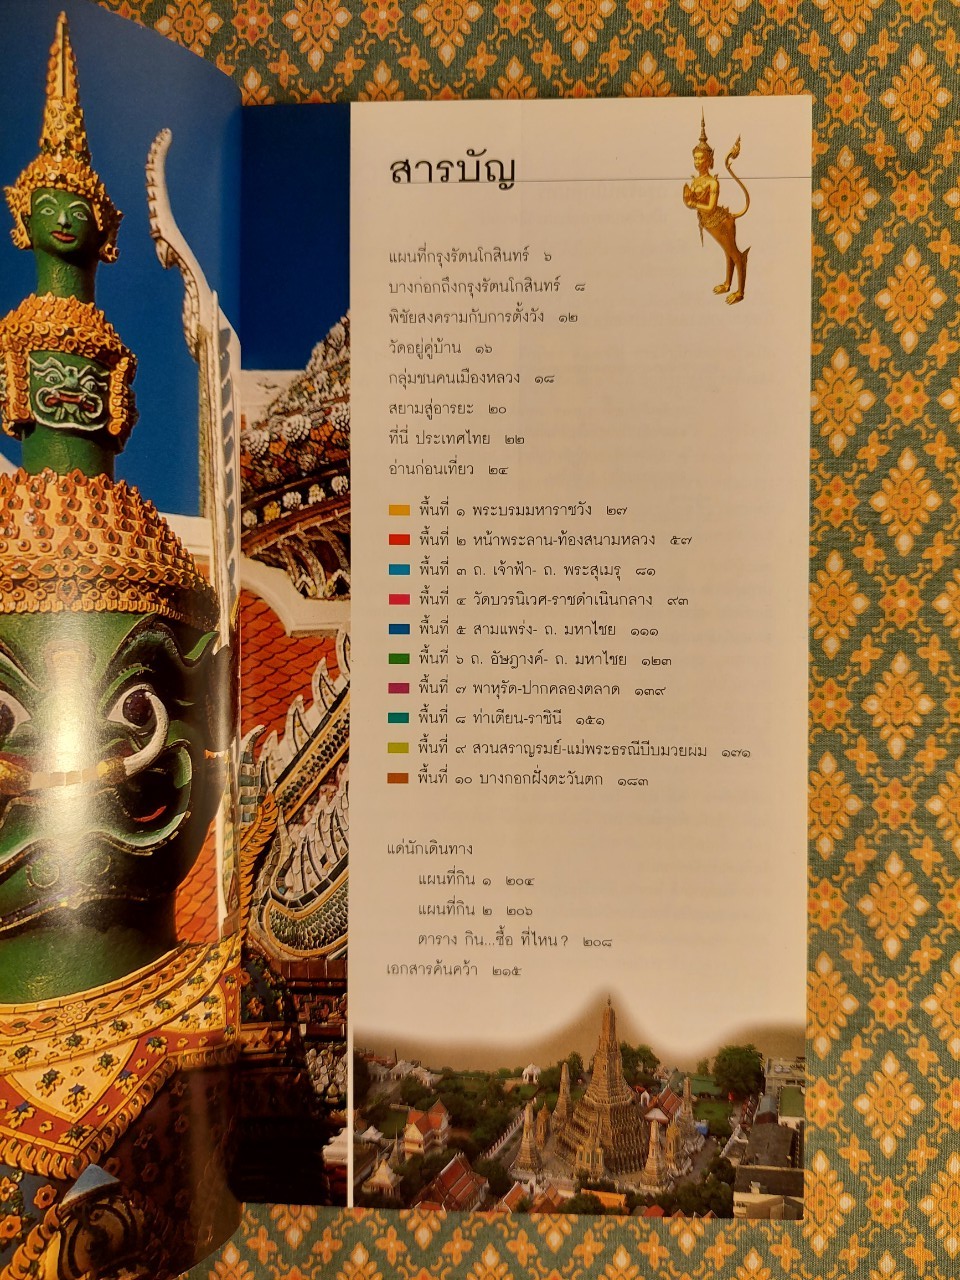 สารบัญ
แผนที่กรุงรัตนโกสินทร์ ๖
บางกอกถึงกรุงรัตนโกสินทร์ ๘
พิชัยสงครามกับการตั้งวัง ๑๒
วัดอยู่คู่บ้าน ๑๖
กลุ่มชนคนเมืองหลวง ๑๘
สยามสู่อารยะ ๒๐
ที่นี่ ประเทศไทย ๒๒
อ่านก่อนเที่ยว ๒๔
พื้นที่ ๑ พระบรมมหาราชวัง ๒๗
พื้นที่ ๒ หน้าพระลาน-ท้องสนามหลวง ๕๗
พื้นที่ ๓ ถ. เจ้าฟ้า- ถ. พระสุเมรุ ๘๑
พื้นที่ ๔ วัดบวรนิเวศ-ราชดำเนินกลาง ๙๓
พื้นที่ ๕ สามแพร่ง- ถ. มหาไชย ๑๑๑
พื้นที่ ๖ ถ. อัษฎางค์- ถ. มหาไชย ๑๒๓
พื้นที่ ๗ พาหุรัด-ปากคลองตลาด ๑๓๙
พื้นที่ ๘ ท่าเตียน-ราชินี ๑๕๑
พื้นที่ ๙ สวนสราญรมย์-แม่พระธรณีบีบมวยผม ๑๗๑
พื้นที่ ๑๐ บางกอกฝั่งตะวันตก ๑๘๓
แด่นักเดินทาง
แผนที่กิน ๑ ๒๐๔
แผนที่กิน ๒ ๒๐๖
ตาราง กิน...ซื้อ ที่ไหน? ๒๐๘
เอกสารค้นคว้า ๒๑๕